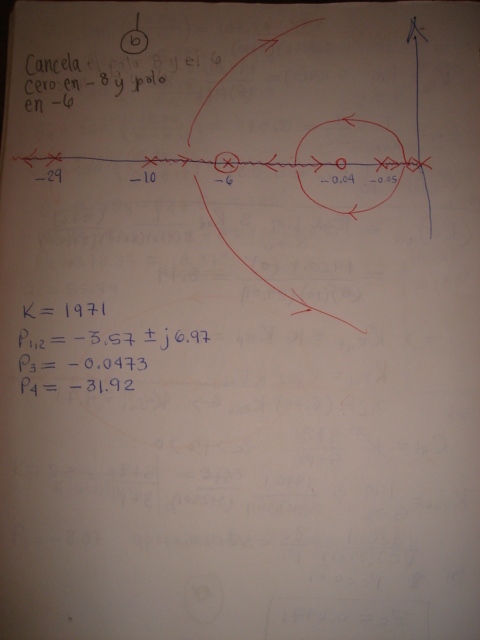 b
Cancela
cero en -8 y polo
en -6
-29
-10
-6
-0.04
-0.05
K = 1971
P1,2 = -3.57 ± j6.97
P3 = -0.0473
P4 = -31.92